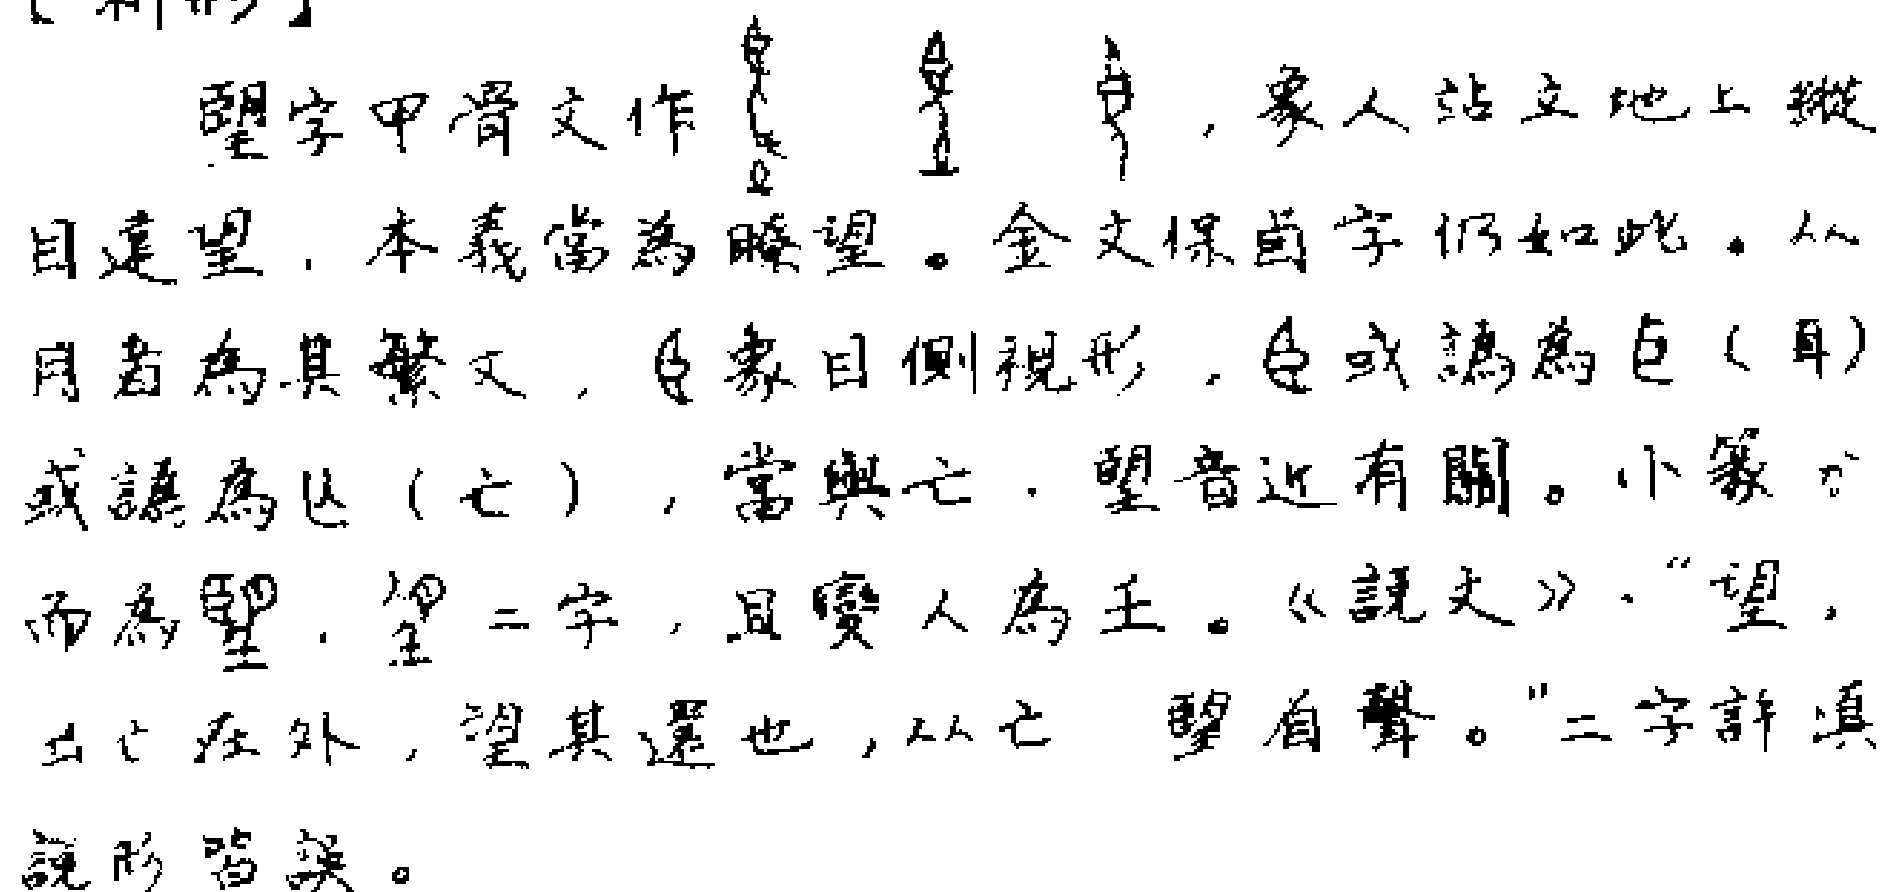 【析形】
朢字甲骨文作 ，象人站立地上縱
目遠望，本義當為瞭望。金文保卣字仍如此。从
月者為其繁文，象目側視形，或譌為𦣞（耳）
或譌為亾（亡），當與亡、朢音近有關。小篆分
而為朢、望二字，且變人為壬。《說文》：“望，
出亡在外，望其還也，从亡 朢省聲。”二字許慎
說形皆誤。